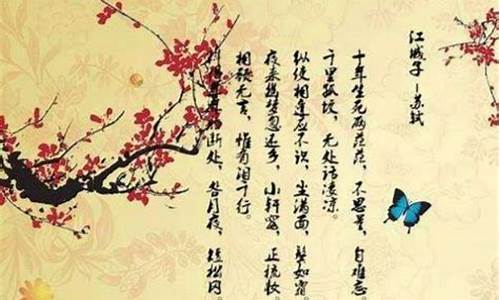 江城子 -苏轼
十年生死两茫茫，不思量，自难忘
千里孤坟，无处话凄凉。
纵使相逢应不识，尘满面，鬓如霜。
夜来幽梦忽还乡，小轩窗，正梳妆。
相顾无言，惟有泪千行。
料得年年肠断处，明月夜，短松冈。